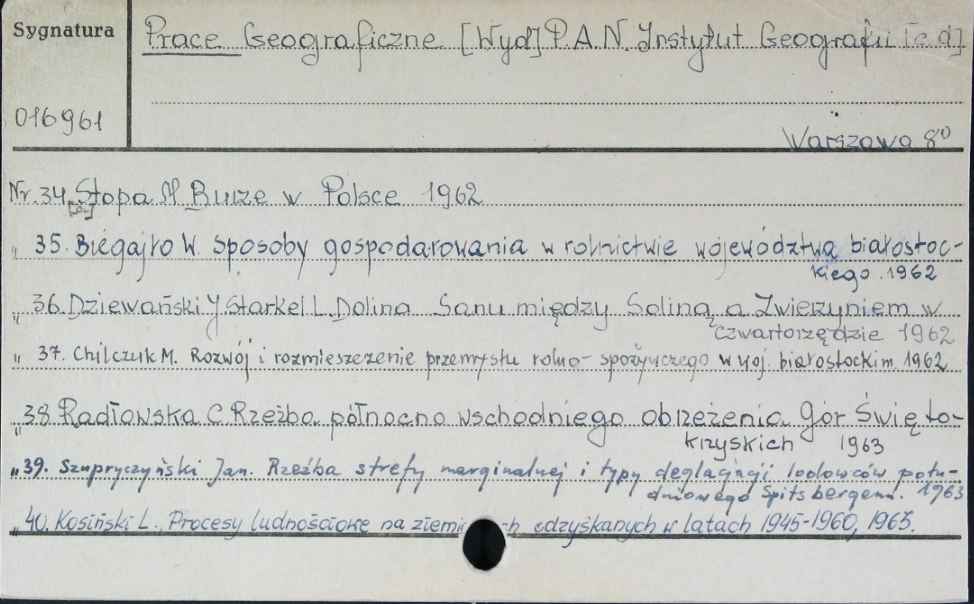 Sygnatura
Prace Geograficzne [Wyd] P.A.N. Instytut Geografii [e.d]
016961
Warszawa 8º
Nr. 34. Stopa M Burze w Polsce 1962
" 35. Biegajło W. Sposoby gospodarowania w rolnictwie województwa białostoc-
kiego. 1962
" 36. Dziewański J. Starkel L. Dolina Sanu między Soliną a Zwierzyniem w
czwartorzędzie 1962
" 37. Chilczuk M. Rozwój i rozmieszczenie przemysłu rolno-spożywczego w woj. białostockim 1962
" 38 Radłowska C Rzeźba północno wschodniego obrzeżenia Gór Święto-
krzyskich 1963
" 39. Szupryczyński Jan. Rzeźba strefy marginalnej i typy deglacjacji lodowców połu-
dniowego Spitsbergenu. 1963
" 40. Kosiński L., Procesy ludnościowe na ziemiach odzyskanych w latach 1945-1960, 1963.